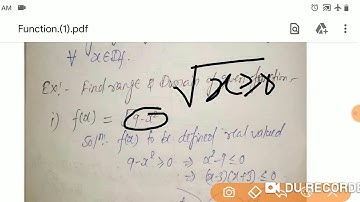 AM
Function.(1).pdf
∀ x∈Df.
Ex:- Find range & Domain of given function -
√x≥0
i) f(x) = √9-x²
Solⁿ: f(x) to be defined real valued
9-x² ≥0 ⇒ x²-9 ≤0
⇒ (x-3)(x+3) ≤0
DU RECORDER